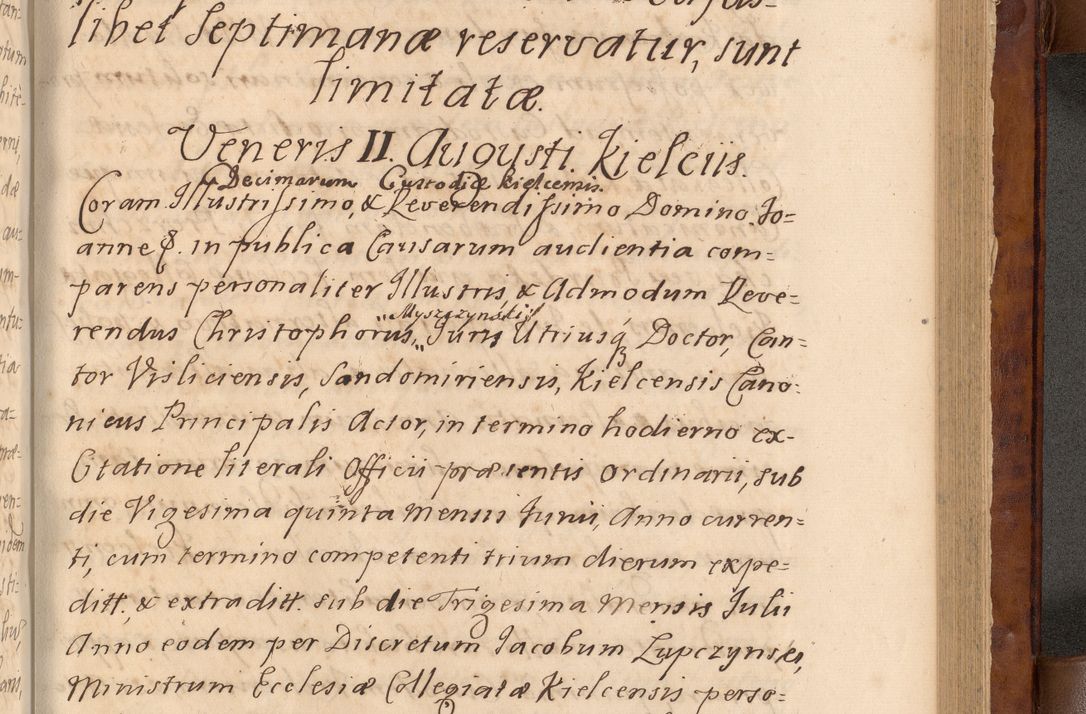 libet Septimanæ reservatur, sunt
limitatæ.
Veneris II. Augusti. Kielciis.
Decimarum Custodiæ kielcensis.
Coram Illustrissimo, & Reverendissimo Domino Jo=
anne &. in publica Causarum audientia com=
parens personaliter Illustris & Admodum Reve=
rendus Christophorus, "Myszczynski" Juris Utriusq; Doctor, Can=
tor Visliciensis, Sandomiriensis, Kielcensis Cano=
nicus Principalis Actor, in termino hodierno ex-
Citatione literali Officii præsentis Ordinarii, sub
die Vigesima quinta Mensis Junii, Anno curren=
ti, cum termino competenti trium dierum expe=
ditt. & extraditt. sub die Trigesima Mensis Julii
Anno eodem per Discretum Jacobum Lupczynski,
Ministrum Ecclesiæ Collegiatæ Kielcensis perso=